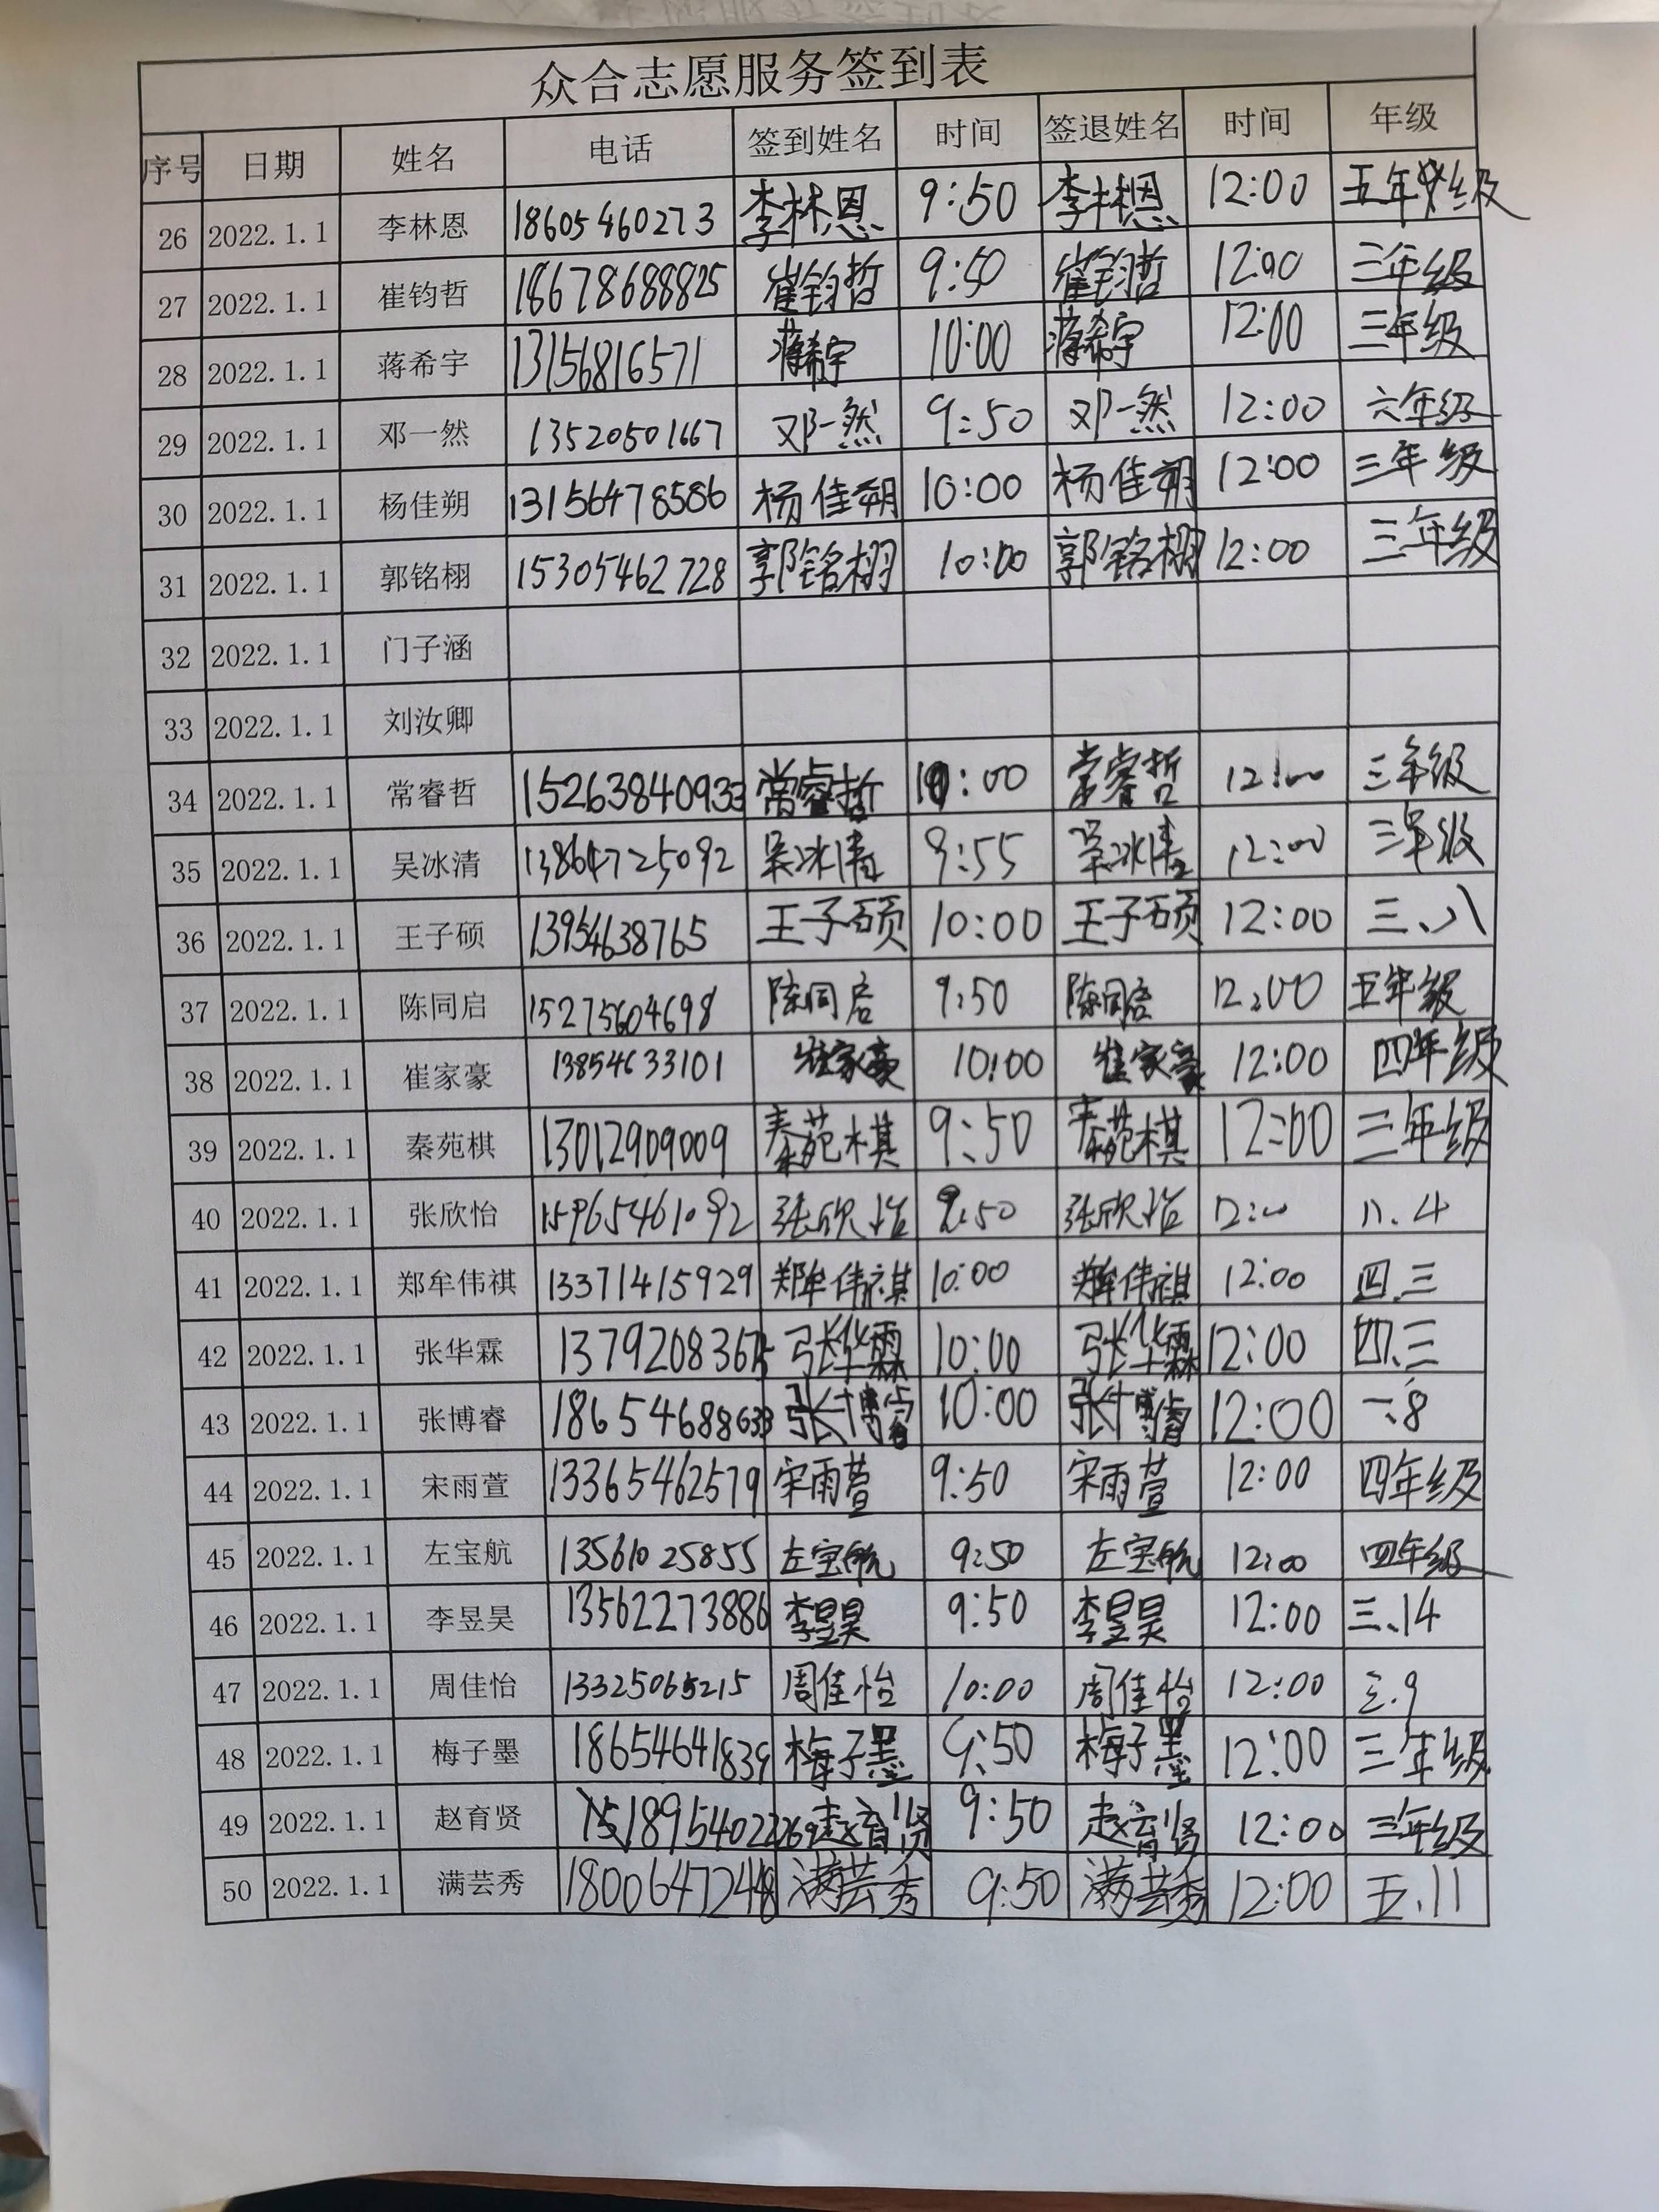 众合志愿服务签到表
序号 日期 姓名 电话 签到姓名 时间 签退姓名 时间 年级
26 2022.1.1 李林恩 18605460273 李林恩 9:50 李林恩 12:00 五年级
27 2022.1.1 崔钧哲 18678688825 崔钧哲 9:50 崔钧哲 12:00 三年级
28 2022.1.1 蒋希宇 13156816571 蒋希宇 10:00 蒋希宇 12:00 三年级
29 2022.1.1 邓一然 13520501667 邓一然 9:50 邓一然 12:00 六年级
30 2022.1.1 杨佳朔 13156478586 杨佳朔 10:00 杨佳朔 12:00 三年级
31 2022.1.1 郭铭栩 15305462728 郭铭栩 10:00 郭铭栩 12:00 三年级
32 2022.1.1 门子涵
33 2022.1.1 刘汝卿
34 2022.1.1 常睿哲 15263840933 常睿哲 10:00 常睿哲 12:00 三年级
35 2022.1.1 吴冰清 13864725092 吴冰清 9:55 吴冰清 12:00 三年级
36 2022.1.1 王子硕 13954638765 王子硕 10:00 王子硕 12:00 三、八
37 2022.1.1 陈同启 15275604698 陈同启 9:50 陈同启 12:00 五年级
38 2022.1.1 崔家豪 13854633101 崔家豪 10:00 崔家豪 12:00 四年级
39 2022.1.1 秦苑棋 13012909009 秦苑棋 9:50 秦苑棋 12:00 三年级
40 2022.1.1 张欣怡 15965461092 张欣怡 9:50 张欣怡 12:00 八.4
41 2022.1.1 郑牟伟祺 13371415929 郑牟伟祺 10:00 郑牟伟祺 12:00 四.三
42 2022.1.1 张华霖 张华霖 10:00 张华霖 12:00 四、三
43 2022.1.1 张博睿 18654688633 张博睿 10:00 张博睿 12:00 一、8
44 2022.1.1 宋雨萱 13365462579 宋雨萱 9:50 宋雨萱 12:00 四年级
45 2022.1.1 左宝航 13561025855 左宝航 9:50 左宝航 12:00 四年级
46 2022.1.1 李昱昊 13562273886 李昱昊 9:50 李昱昊 12:00 三、14
47 2022.1.1 周佳怡 13325065215 周佳怡 10:00 周佳怡 12:00 三.9
48 2022.1.1 梅子墨 18654641839 梅子墨 9:50 梅子墨 12:00 三年级
49 2022.1.1 赵育贤 赵育贤 9:50 赵育贤 12:00 三年级
50 2022.1.1 满芸秀 18006472448 满芸秀 9:50 满芸秀 12:00 五.11